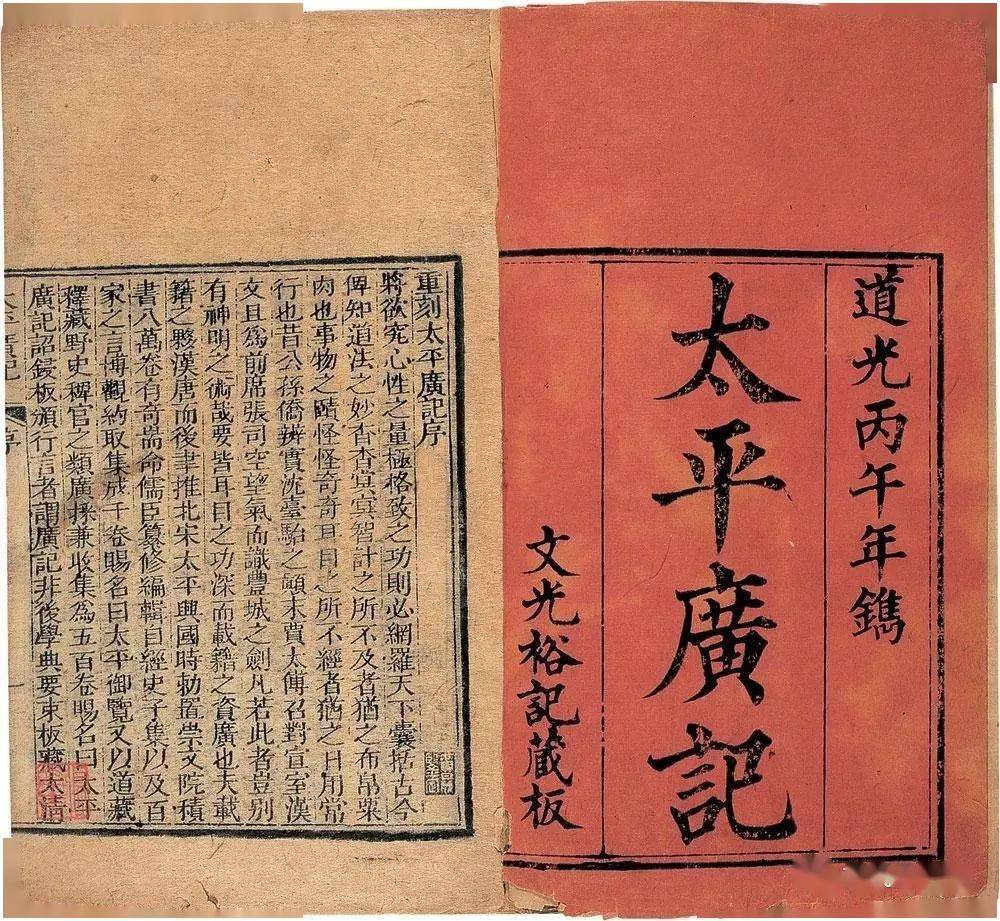 道光丙午年鐫
太平廣記
文光裕記藏板
重刻太平廣記序
將欲究心性之量極格致之功則必網羅天下囊括古今
俾知道法之妙杳杳冥冥智計之所不及者猶之布帛粟
肉也事物之賾怪怪奇奇耳目之所不經者猶之日用常
行也昔公孫僑辨實沈臺駘之顛末賈太傅召對宣室漢
文且為前席張司空望氣而識豐城之劍凡若此者豈別
有神明之術哉要皆耳目之功深而載籍之資廣也夫載
籍之夥漢唐而後聿推北宋太平興國時勅置崇文院積
書八萬卷有奇耑命儒臣纂修編輯自經史子集以及百
家之言博觀約取集成千卷賜名曰太平御覽又以道藏
釋藏野史稗官之類廣採兼收集為五百卷賜名曰太平
廣記詔鋟板頒行言者謂廣記非後學典要束板藏太清